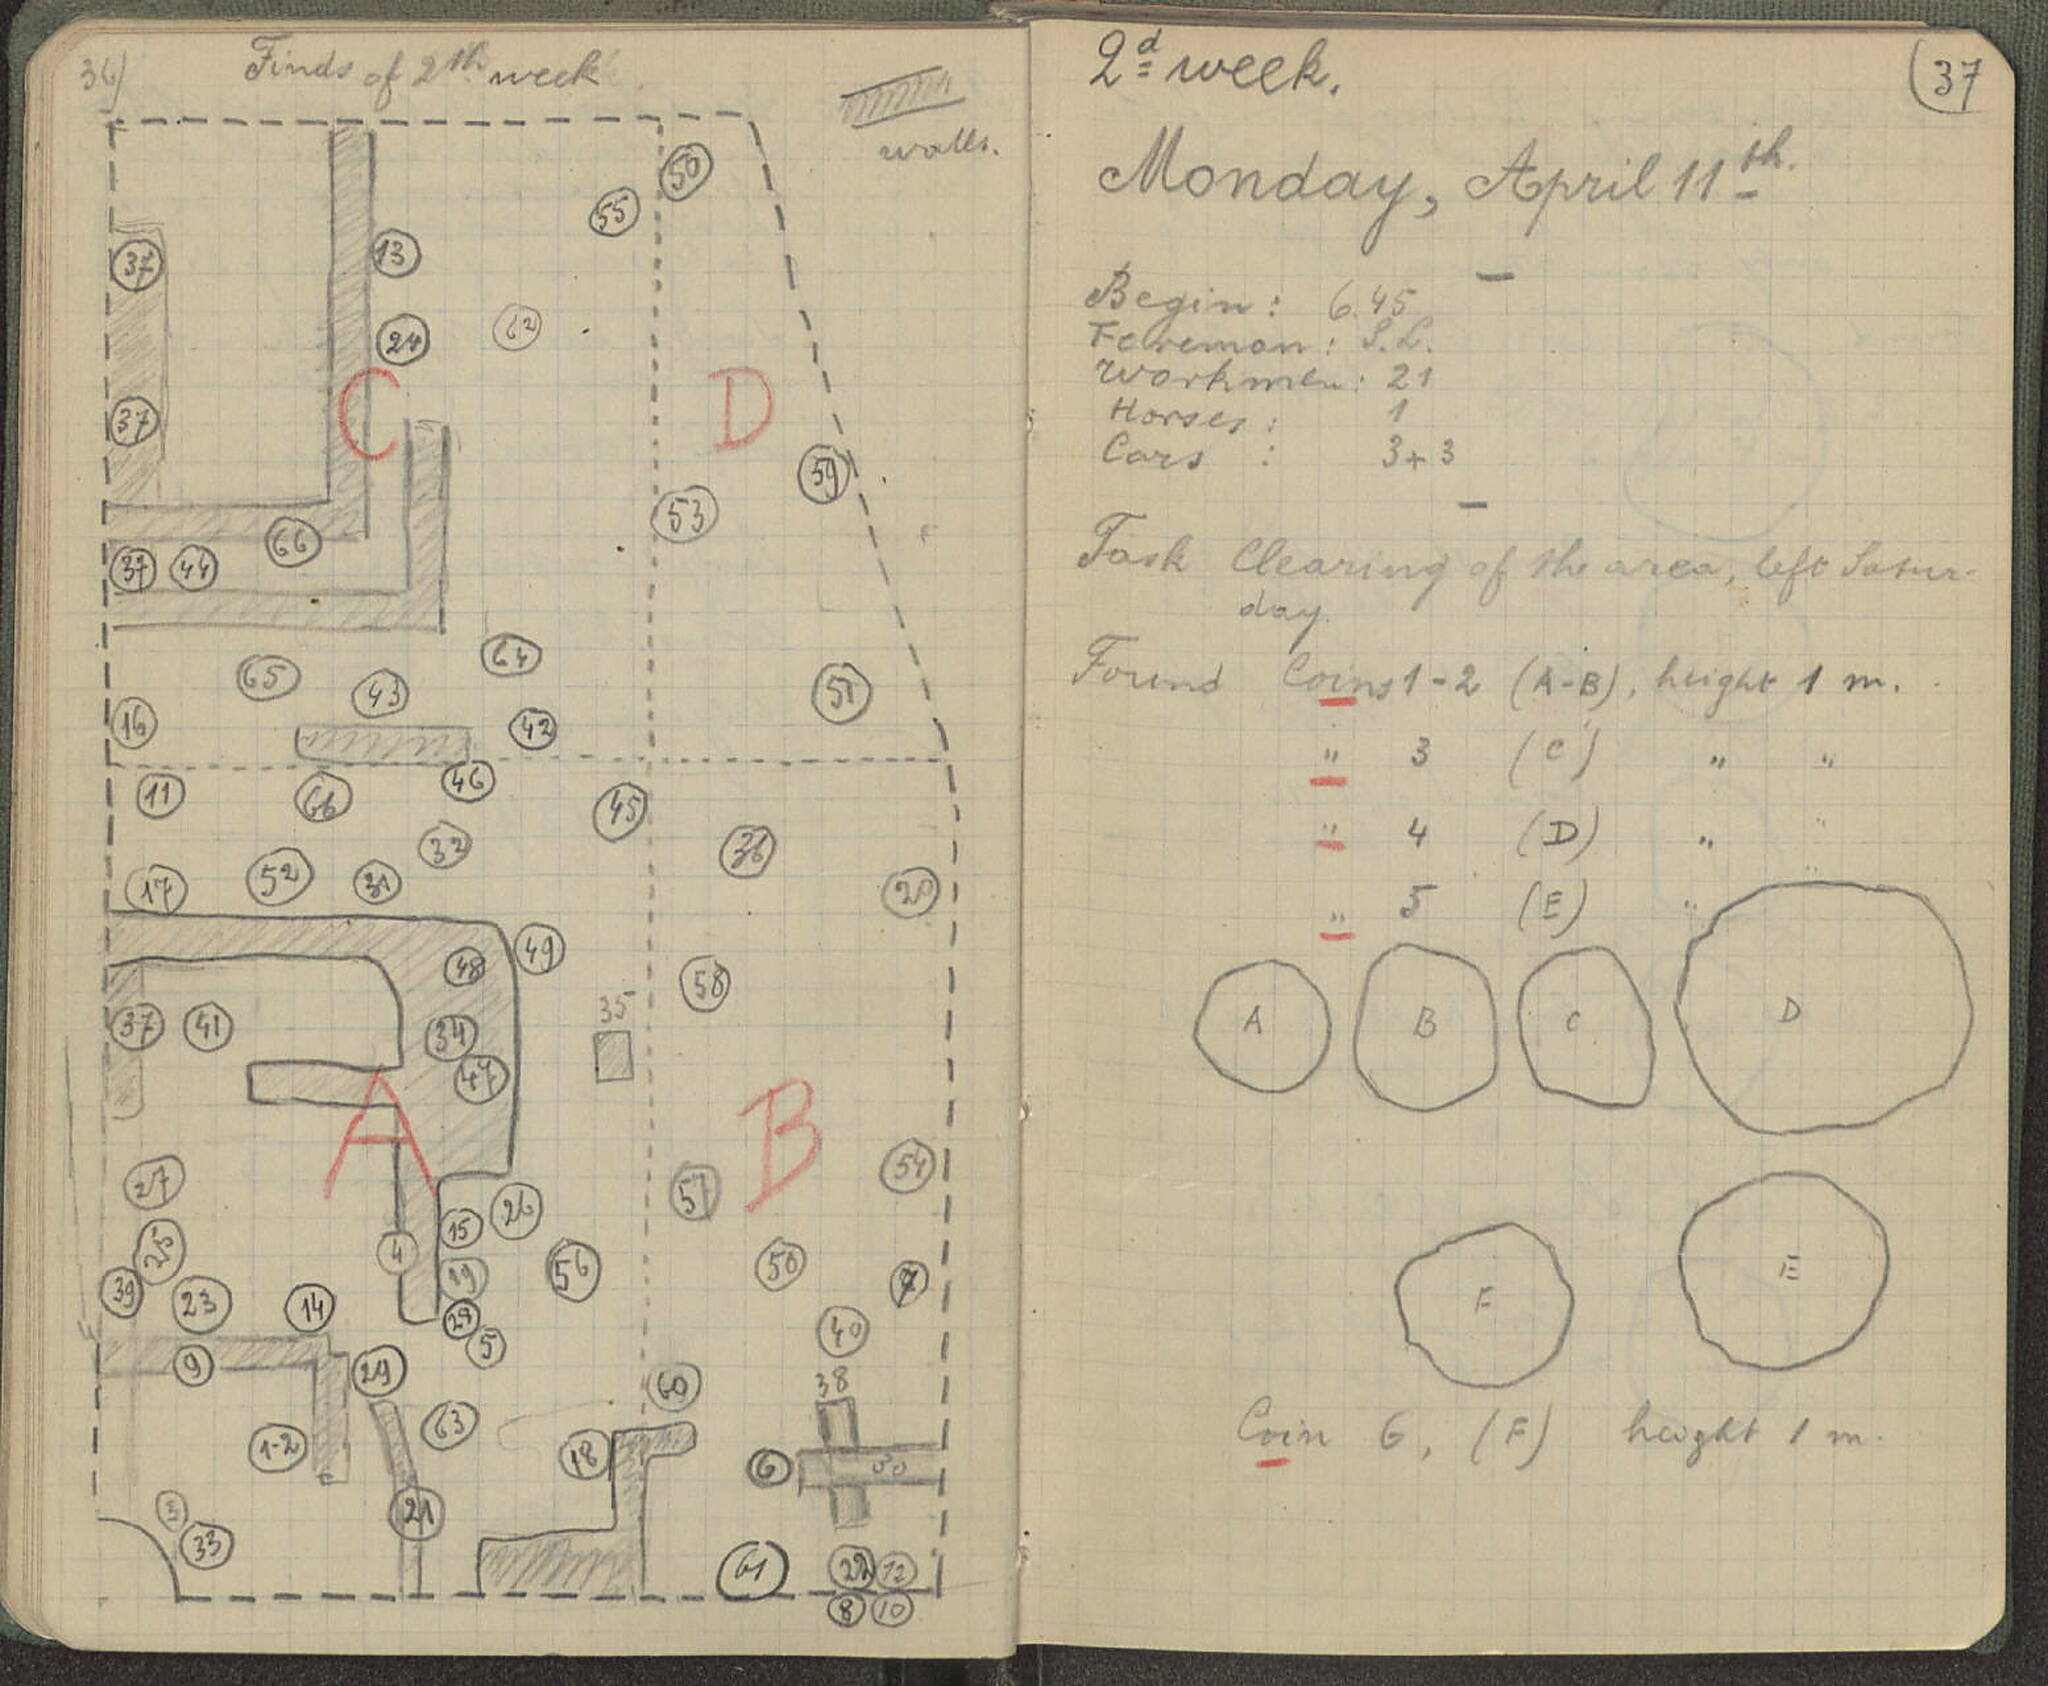 36)
Finds of 2th week
walls.
50
55
37
13
24
62
C
D
37
59
53
66
37 44
64
65
43
51
16
42
11
66
46
45
32
36
17
52
31
20
49
48
58
37
41
34
35
47
A
B
27
57
54
15
26
25
4
56
50
39
23
14
19
7
28
5
40
9
29
60
38
1-2
63
18
6
30
3
33
21
61
22 12
8 10
2d week.
37
Monday, April 11th.
Begin: 6.45
Foreman: S.L.
Workmen: 21
Horses: 1
Cars : 3+3
Task Clearing of the area, left Satur-
day.
Found Coins 1-2 (A-B), height 1 m.
" 3 (C) " "
" 4 (D) " "
" 5 (E) " "
A B C D
F E
Coin 6, (F) height 1 m.